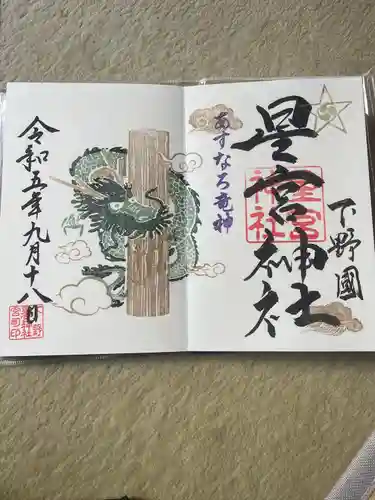 下野國
星宮神社
星宮
神社
あすなろ竜神
令和五年九月十八日